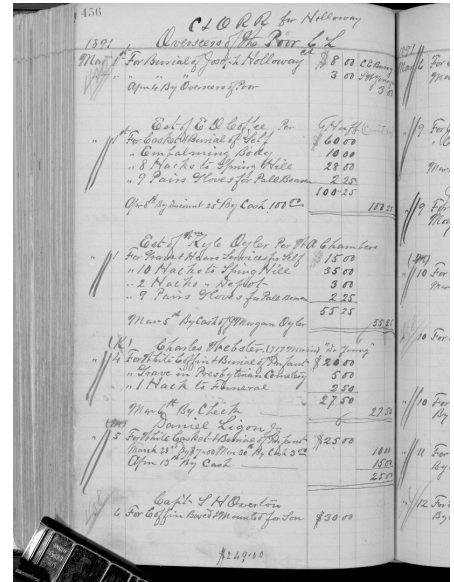 456
C & O R R for Holloway
1891 Overseers of the Poor
Mar 1st For Burial of Joseph Holloway $8 00
3 00
Apr 4 By Overseers of Poor 3 00
Est of E D Coffee Per Huff
" 1st For Casket & Burial of Self $60 00
" Embalming Body 10 00
" 8 Hacks to Spring Hill 28 00
" 9 Pairs Gloves for Pall Bearers 2 25
100 25
Apr 8th By Discount 25c By Cash 100 00 100 25
Est of Kyle Oyler Per W A Chambers
" 1 For Services for Self $15 00
" 10 Hacks to Spring Hill 35 00
" 2 Hacks " Depot 3 00
" 9 Pairs Gloves for Pall Bearers 2 25
55 25
Mar 5th By Cash of Morgan Oyler 55 25
Charles Webster 1717 Main
" 4 For White Coffin & Burial of Infant $20 00
" Grave in Presbyterian Cemetery 5 00
" 1 Hack to Funeral 2 50
27 50
Mar 6th By Check 27 50
Daniel Ligon Jr
" 5 For White Casket & Burial of Infant $25 00
March 28th By Mar 30 By Cash 10 00
Apr 13th By Cash 15 00
25 00
Capt S H Overton
6 For Coffin Boxed & Mounted for Son $30 00
$249.00
1891
Mar 6 For
" 9 For
Mar
" 9 For
" 10 For
Mar
" 10 For
" 10 For
By
" 11 For
By
" 12 For
By